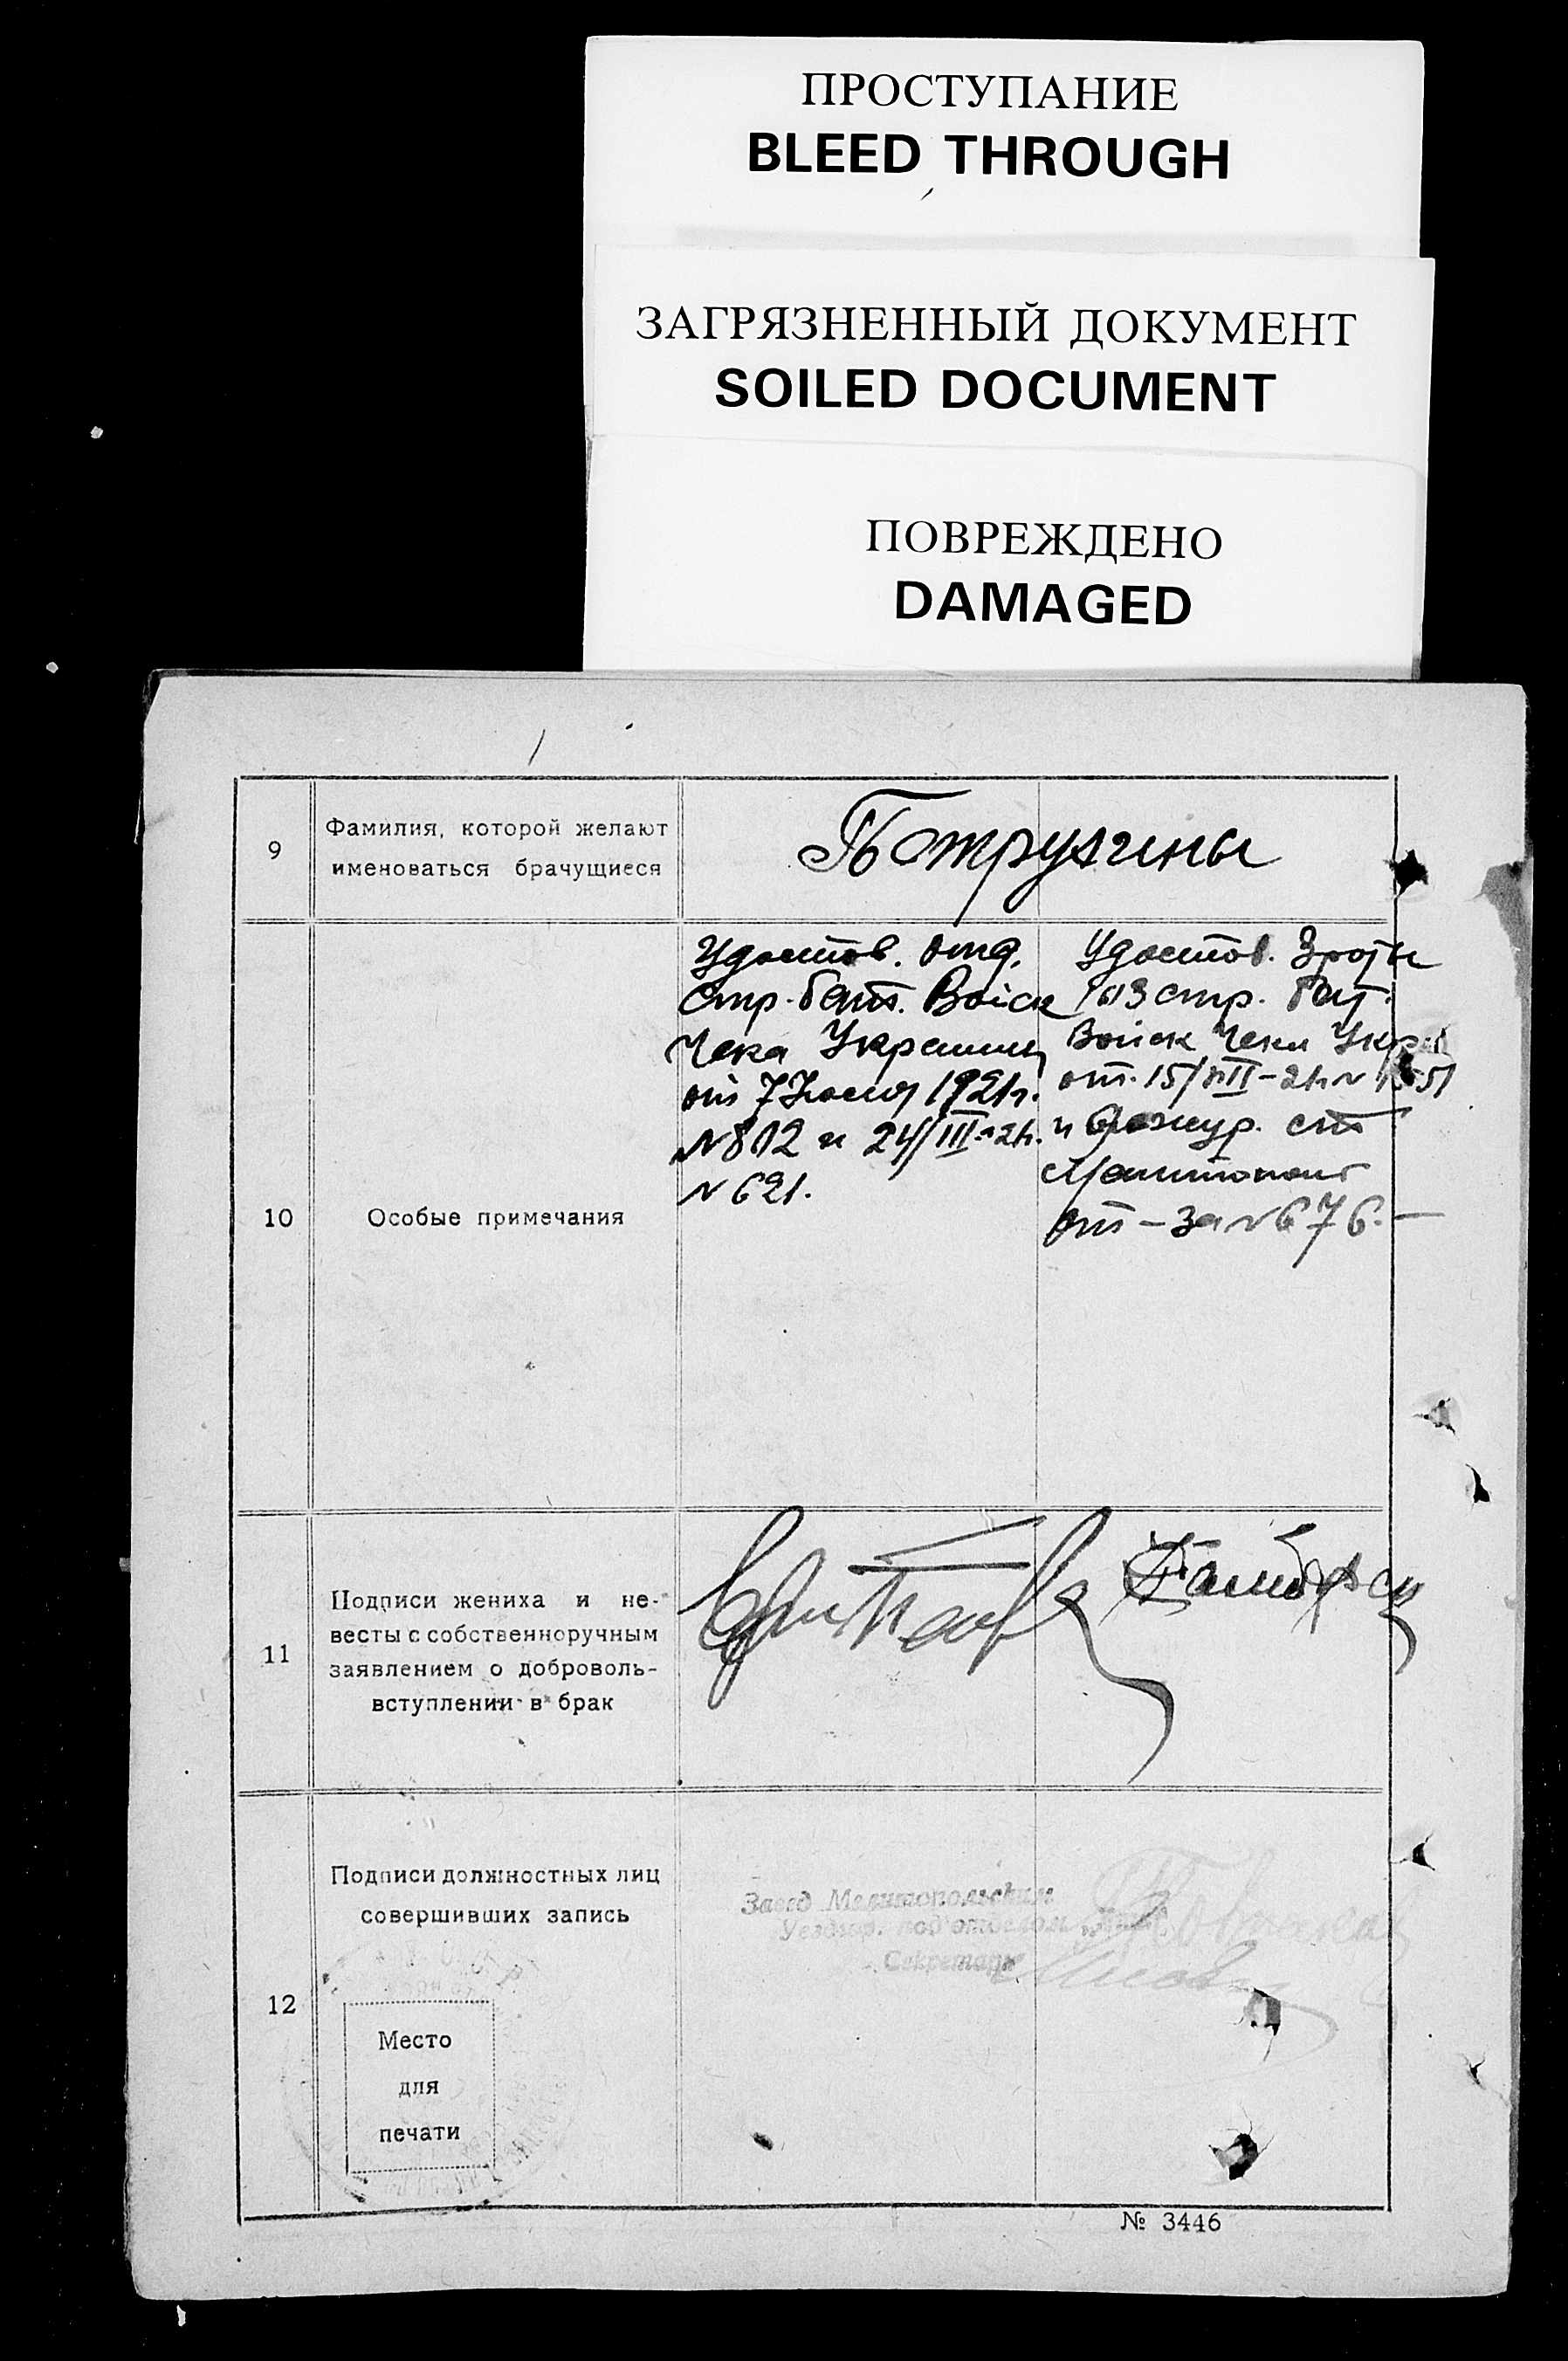 ПРОСТУПАНИЕ
BLEED THROUGH
ЗАГРЯЗНЕННЫЙ ДОКУМЕНТ
SOILED DOCUMENT
ПОВРЕЖДЕНО
DAMAGED
9
Фамилия, которой желают
именоваться брачущиеся
10
Особые примечания
Удостов. отд.
стр. бат. Войск
Чека Украины
от 7 1921г.
N 812 и 24/III-21г.
N 621.
Удостов. 3 роты
стр. бат.
Войск Чека Укр
от 15/VIII-21г N
и ст
от — за N 676. —
11
Подписи жениха и не-
весты с собственноручным
заявлением о доброволь-
вступлении в брак
12
Подписи должностных лиц
совершивших запись
Завед Мелитопольским
Уездгор. под'отделом
Секретарь
Место
для
печати
№ 3446